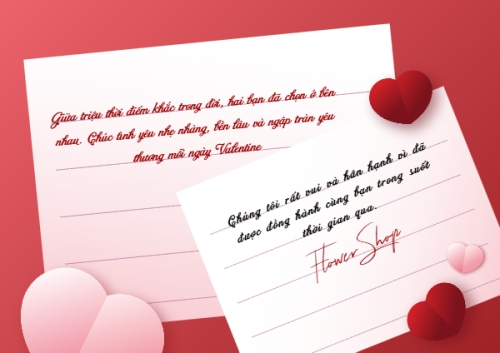 Giữa triệu thời điểm khắc trong đời, hai bạn đã chọn ở bên
nhau. Chúc tình yêu nhẹ nhàng, bền lâu và ngập tràn yêu
thương mỗi ngày Valentine
Chúng tôi rất vui và hân hạnh vì đã
được đồng hành cùng bạn trong suốt
thời gian qua.
Flower Shop